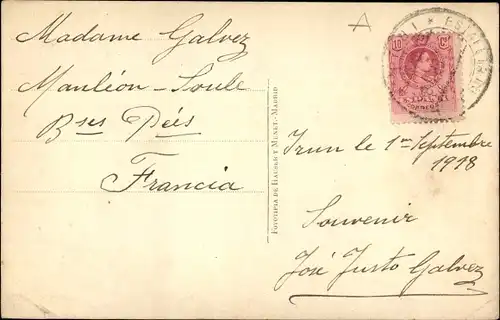 Madame Galvez
Mauléon-Soule
Bses Pées
Francia
FOTOTIPIA DE HAUSER Y MENET.-MADRID
Irun le 1er Septembre
1918
Souvenir
José Justo Galvez
10 Cs
CORREOS